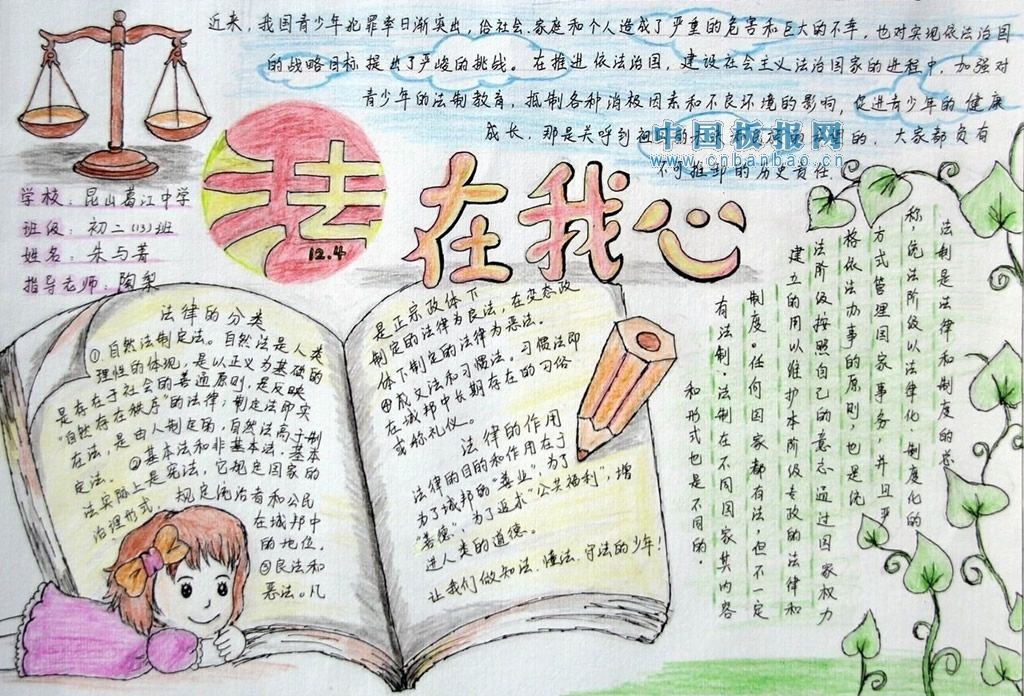 近来，我国青少年犯罪率日渐突出，给社会、家庭和个人造成了严重的危害和巨大的不幸，也对实现依法治国
的战略目标提出了严峻的挑战。在推进依法治国，建设社会主义法治国家的进程中，加强对
青少年的法制教育，抵制各种消极因素和不良环境的影响，促进青少年的健康
成长，那是关乎到祖 的，大家都负有
不可推卸的历史责任。
中国板报网
www.cnbanbao.cn
法在我心
12.4
学校：昆山葛江中学
班级：初二(13)班
姓名：朱与菁
指导老师：陶梨
法律的分类
①自然法制定法。自然法是人类
理性的体现，是以正义为基础的
是存在于社会的普通原则，是反映
"自然存在秩序"的法律；制定法即实
在法，是由人制定的，自然法高于制
定法。②基本法和非基本法。基本
法实际上是宪法，它规定国家的
治理形式，规定统治者和公民
在城邦中
的地位。
③良法和
恶法。凡
是正宗政体下
制定的法律为良法，在变态政
体下制定的法律为恶法。
④成文法和习惯法。习惯法即
在城邦中长期存在的习俗
或称礼仪。
法律的作用
法律的目的和作用在于
为了城邦的"善业"，为了
"善德"，为了追求"公共福利"，增
进人类的道德。
让我们做知法、懂法、守法的少年！
法制是法律和制度的总
称，统治阶级以法律化、制度化的
方式管理国家事务，并且严
格依法办事的原则，也是统
治阶级按照自己的意志通过国家权力
建立的用以维护本阶级专政的法律和
制度。任何国家都有法，但不一定
有法制。法制在不同国家其内容
和形式也是不同的。